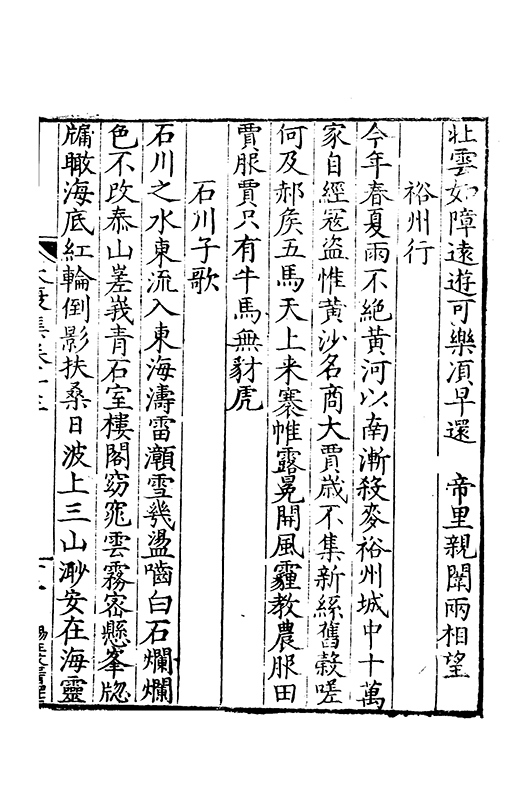 壯雲如障遠遊可樂須早還　帝里親闈兩相望
裕州行
今年春夏雨不絶黄河以南漸殺麥裕州城中十萬
家自經冦盗惟黄沙名商大賈歳不集新絲舊榖嗟
何及郝矦五馬天上来褰帷露冕開風霾教農服田
賈服賈只有牛馬無豺虎
石川子歌
石川之水東流入東海濤雷瀬雪幾盪嚙白石爛爛
色不改泰山嵳峩青石室樓閣窈窕雲霧宻懸峯牎
牖瞰海底紅輪倒影扶桑日波上三山渺安在海靈